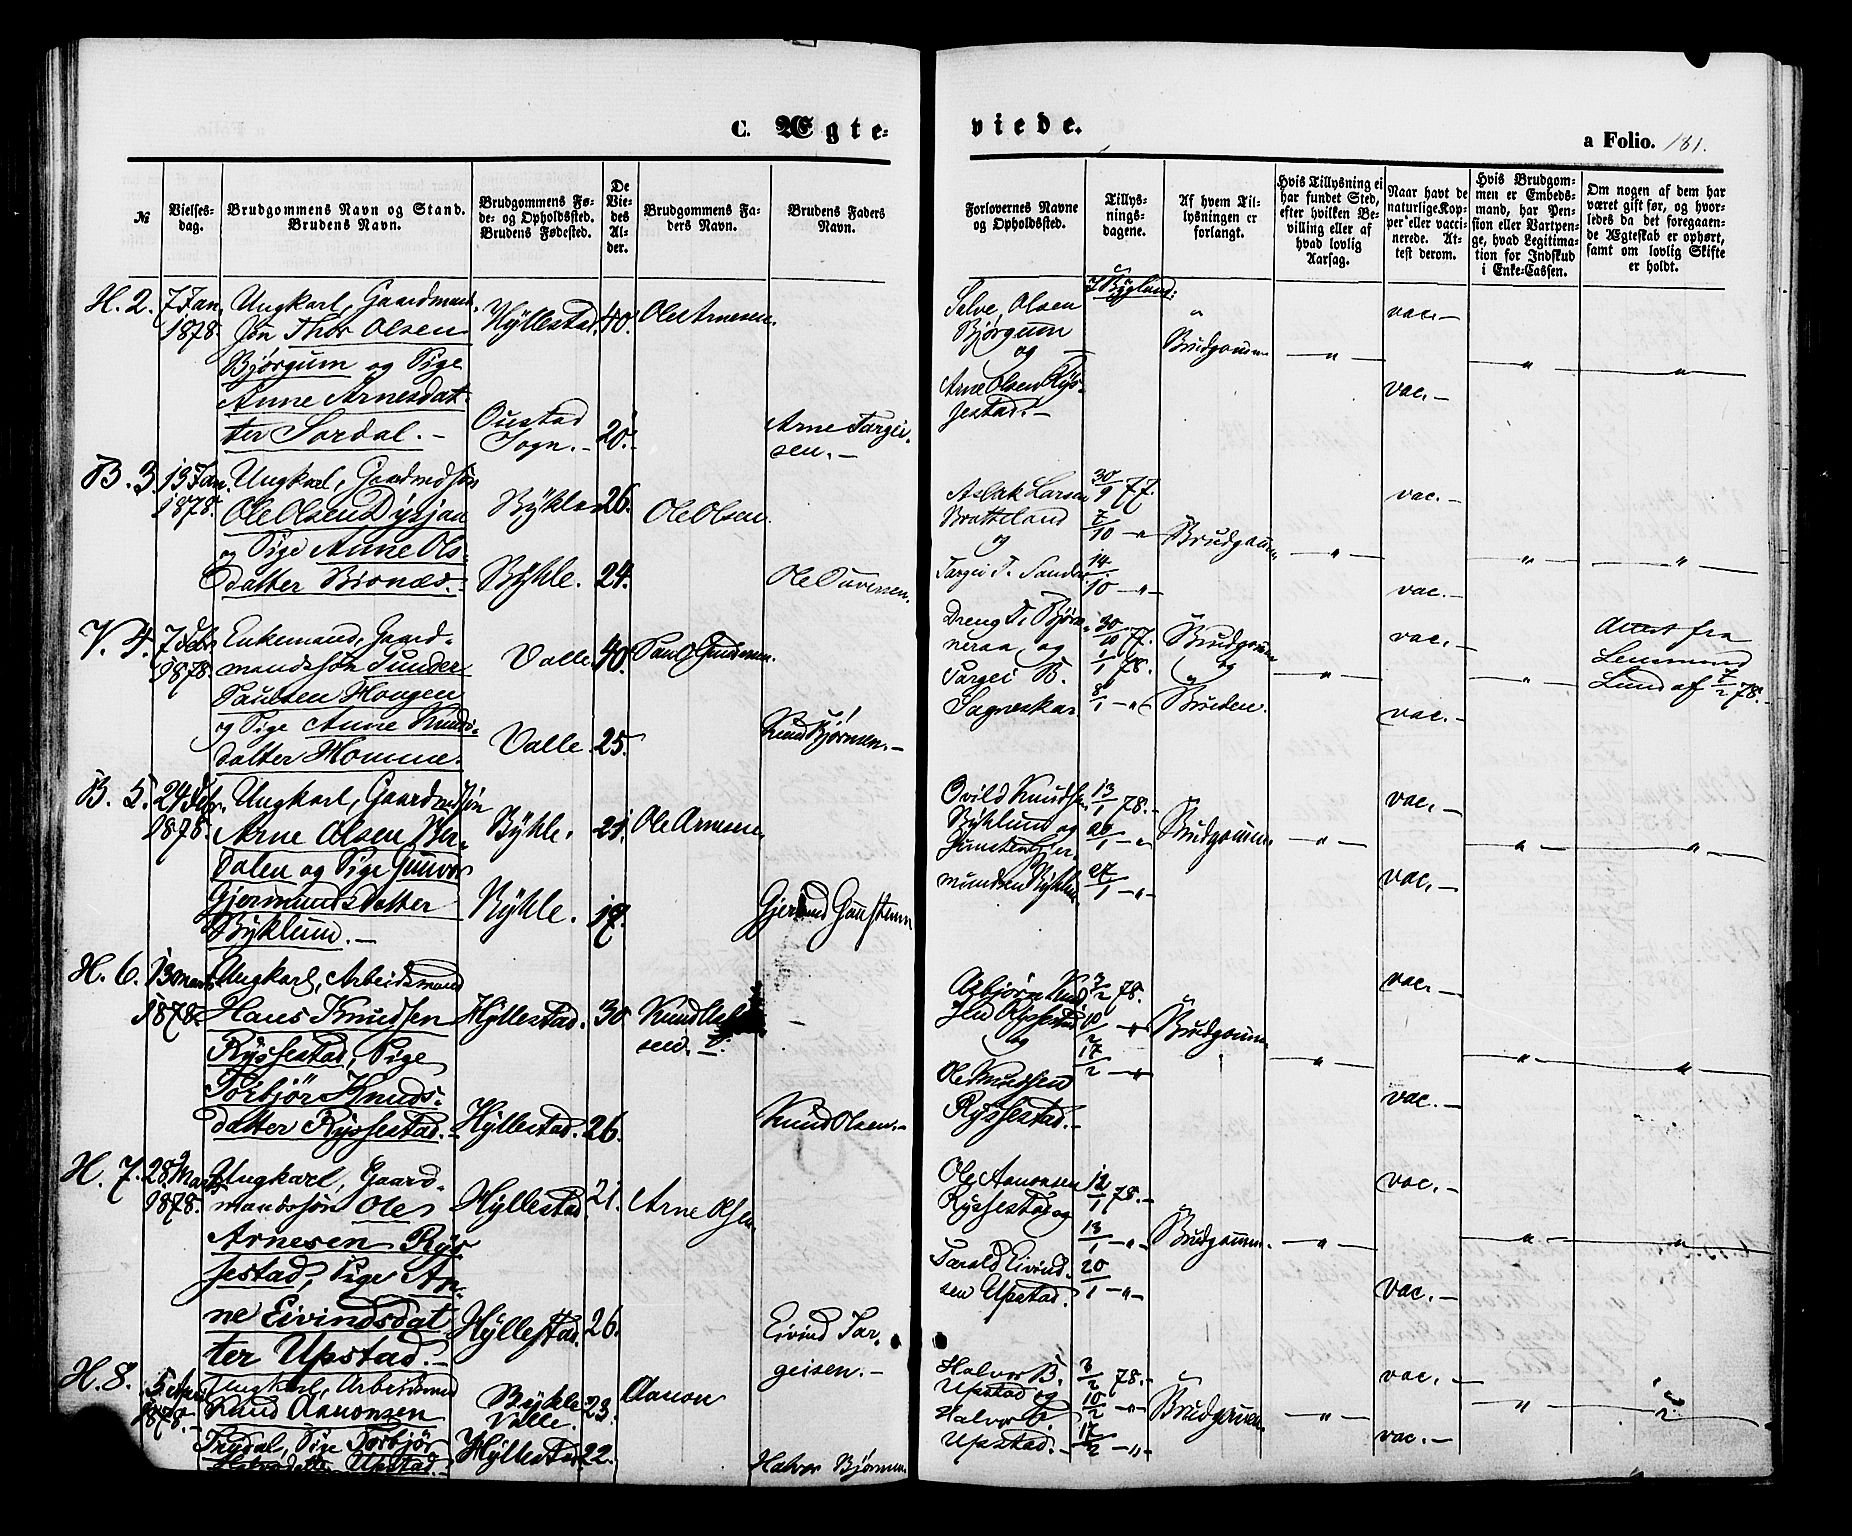 C. Ægte-
viede.
a Folio. 181.
№
Vielses-
dag.
Brudgommens Navn og Stand.
Brudens Navn.
Brudgommens Fø-
de- og Opholdssted.
Brudens Fødested.
De
Vie-
des
Al-
der.
Brudgommens Fa-
ders Navn.
Brudens Faders
Navn.
Forlovernes Navne
og Opholdssted.
Tillys-
nings-
dagene.
Af hvem Til-
lysningen er
forlangt.
Hvis Tillysning ei
har fundet Sted,
efter hvilken Be-
villing eller af
hvad lovlig
Aarsag.
Naar havt de
naturlige Kop-
per eller vacci-
nerede. At-
test derom.
Hvis Brudgom-
men er Embeds-
mand, har Pen-
sion eller Vartpen-
ge, hvad Legitima-
tion for Indskud
i Enke-Cassen.
Om nogen af dem har
været gift før, og hvor-
ledes da det foregaaen-
de Ægteskab er ophørt,
samt om lovlig Skifte
er holdt.
H. 2. 7 Jan. Ungkarl, Gaardmand
1878. Jøn Thor Olsen Hyllestad. 40. Ole Arnesen.
Bjørgum og Pige
Anne Arnesdat-
ter Sordal. —
Oustad
Sogn. — 20. Arne Targei-
sen. —
Salve Olsen
Bjørgum
og
Arne Olsen Rys-
sestad. —
I Bygland:
"
Brudgommen — " — vac. — — " — "
vac. —
B. 3. 13 Jan. Ungkarl, Gaardmdsøn
1878. Ole Olsen Dysjan Bykle 26. Ole Olsen.
og Pige Anne Ols-
datter Bionæs. Bykle. 24. Ole Duvesen.
Aslak Larsen 30/9 77.
Bratteland 7/10 — " Brudgommen — " — vac. — — " — "
og
Targei T. Sander 14/10 — " — vac. —
V. 4. 7 Febr. Enkemand, Gaard-
1878. mandssøn Gunder Valle. 40. Paul Gundersen.
Paulsen Haugen
og Pige Anne Knuds-
datter Homme. Valle. 25. Knud Bjørnsen. —
Dreng D. Bjørn- 30/10 77. Brudgommen vac. — Attest fra
neraa og 1/1 78. og — " — — " — Lensmand
Targei B. Lund af 7/2 78.
Sagneskar 8/1 — " Bruden. vac. —
B. 5. 24 Febr. Ungkarl, Gaardmdsøn
1878. Arne Olsen Ner- Bykle. 21. Ole Arnesen
dalen og Pige Gunvor
Gjermundsdatter Bykle. 17. Gjermund Gunstensen
Byklum. —
Ovild Knudsen 13/1 78. — vac. —
Byklum og 20/1 — " Brudgommen — " — — " — "
Gunsten Gjer-
mundsen Byklum 27/1 — " — vac. —
H. 6. 13 Marts Ungkarl, Arbeidsmand
1878. Hans Knudsen Hyllestad. 30. Knud Ol-
Ryssestad, Pige sen. —
Torbjør Knuds-
datter Ryssestad. — Hyllestad. 26. Knud Olsen. —
Asbjørn Knud 3/2 78. vac. —
sen Ryssestad 10/2 — " Brudgommen — " — — " — "
og 17/2 — "
Ole Knudsen vac. —
Ryssestad. —
H. 7. 28 Marts Ungkarl, Gaard-
1878. mandssøn Ole Hyllestad. 21. Arne Olsen
Arnesen Rys
sestad, Pige An-
ne Eivindsdat- Hyllestad. 26. Eivind Tar-
ter Upstad. — geisen. —
Ole Aanonsen 12/1 78. — vac. —
Ryssestad og
13/1 — " Brudgommen — " — — " — "
Tarald Eivind- 20/1 — " —
sen Upstad. vac. —
H. 8. 5 April Ungkarl, Arbeidsmand Bykle
1878. Knud Aanonsen Valle. 23. Aanon
Trydal, Pige Torbjør Hyllestad. 22. Halvor Bjørnsen.
Halvorsdatter Upstad. —
Halvor B. 3/2 78. — vac. —
Upstad og 10/2 — " Brudgommen — " — — " — "
Halvor O.
Upstad. — 17/2 — " — vac. —